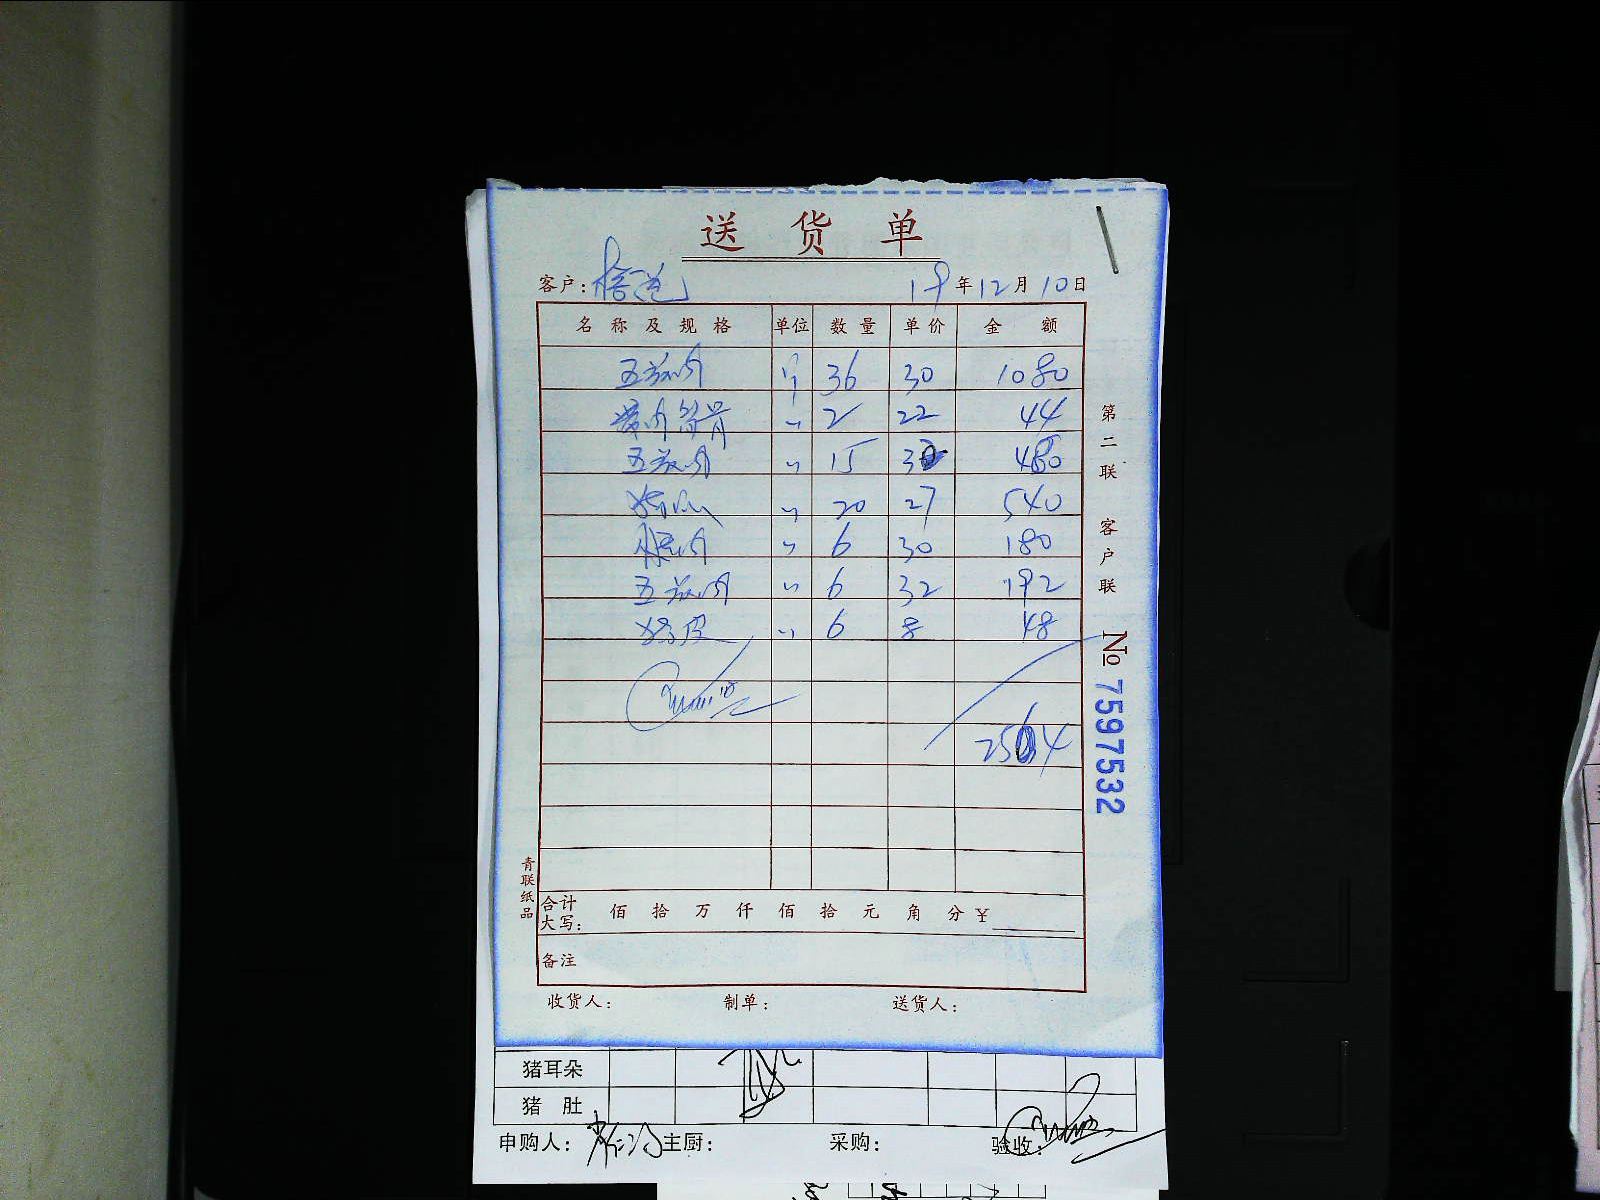 送货单
客户: 19年12月10日
名称及规格 单位 数量 单价 金额
五花肉 斤 36 30 1080
2 22 44
五花肉 〃 15 480
〃 20 27 540
〃 6 30 180
五花肉 〃 6 32 192
猪皮 〃 6 8 48
2564
合计大写: 佰 拾 万 仟 佰 拾 元 角 分 ¥
备注
收货人: 制单: 送货人:
第二联 客户联
No 7597532
青联纸品
猪耳朵
猪肚
申购人: 主厨: 采购: 验收: